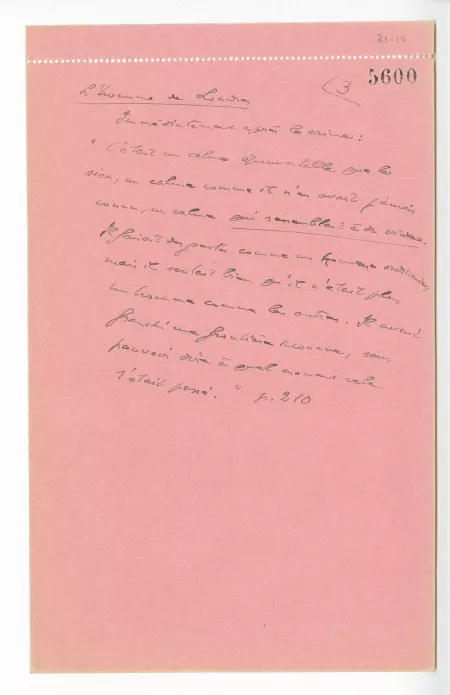 21-10
5600
(3
L'homme de Londres
Immédiatement après le crime :
" C'était un calme épouvantable que le
sien, un calme comme il n'en avait jamais
connu, un calme qui ressemblait à du vide.
Il faisait des gestes comme un homme ordinaire,
mais il sentait bien qu'il n'était plus
un homme comme les autres. Il avait
franchi une frontière inconnue, sans
pouvoir dire à quel moment cela
s'était passé. " p. 210